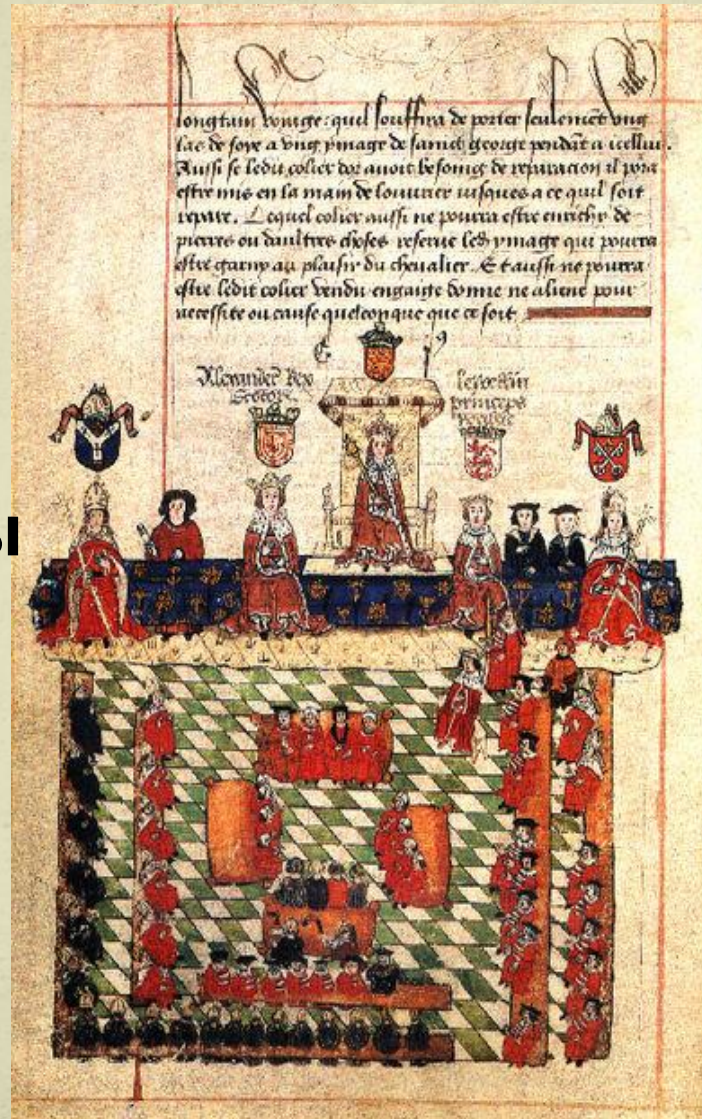 longtain voiage: quil souffira de porter seulemēt ung
las de soye a ung ymage de sainct george pendāt a icellui.
Aussi se ledit colier dor auoit besoing de reparacion il pora
estre mis en la main de louurier iusques a ce quil soit
repare. Lequel colier aussi ne pourra estre enrichy de
pierres ou daultres choses reserue led ymage qui pourra
estre garny au plaisir du cheualier. Et aussi ne pourra
estre ledit colier vendu engaige donne ne aliene pour
necessite ou cause quelconque que ce soit
Alexander Rex
Scotor
princeps
ы